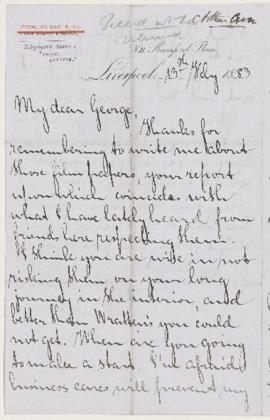 Telegraphic Address
Liverpool, 13th Feby 1883
My dear George,
Thanks for
remembering to write me about
those film papers, your report
upon which coincides with
what I have lately heard from
friends here respecting them.
I think you are wise in not
risking them on your long
journey in the interior, and
better than Wratten's you could
not get. When are you going
to make a start. I'm afraid
business cares will prevent my